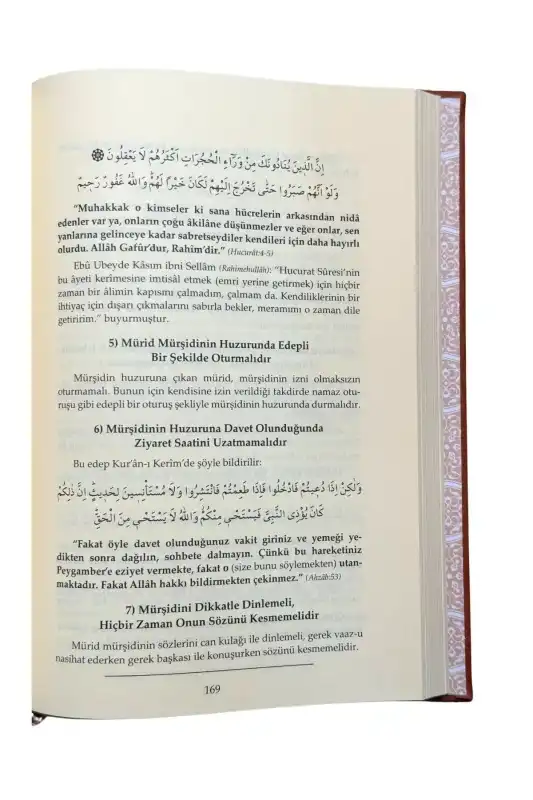 اِنَّ الَّذ۪ينَ يُنَادُونَكَ مِنْ وَرَٓاءِ الْحُجُرَاتِ اَكْثَرُهُمْ لَا يَعْقِلُونَ ۞
وَلَوْ اَنَّهُمْ صَبَرُوا حَتّٰى تَخْرُجَ اِلَيْهِمْ لَكَانَ خَيْرًا لَهُمْ وَاللّٰهُ غَفُورٌ رَح۪يمٌ
"Muhakkak o kimseler ki sana hücrelerin arkasından nidâ
edenler var ya, onların çoğu âkilâne düşünmezler ve eğer onlar, sen
yanlarına gelinceye kadar sabretseydiler kendileri için daha hayırlı
olurdu. Allâh Gafûr'dur, Rahîm'dir." (Hucurât:4-5)
Ebû Ubeyde Kâsım ibni Sellâm (Rahimehullâh): "Hucurat Sûresi'nin
bu âyeti kerîmesine imtisâl etmek (emri yerine getirmek) için hiçbir
zaman bir âlimin kapısını çalmadım, çalmam da. Kendiliklerinin bir
ihtiyaç için dışarı çıkmalarını sabırla bekler, meramımı o zaman dile
getiririm." buyurmuştur.
5) Mürid Mürşidinin Huzurunda Edepli
Bir Şekilde Oturmalıdır
Mürşidin huzuruna çıkan mürid, mürşidinin izni olmaksızın
oturmamalı. Bunun için kendisine izin verildiği takdirde namaz otu-
ruşu gibi edepli bir oturuş şekliyle mürşidinin huzurunda durmalıdır.
6) Mürşidinin Huzuruna Davet Olunduğunda
Ziyaret Saatini Uzatmamalıdır
Bu edep Kur'ân-ı Kerîm'de şöyle bildirilir:
وَلٰكِنْ اِذَا دُع۪يتُمْ فَادْخُلُوا فَاِذَا طَعِمْتُمْ فَانْتَشِرُوا وَلَا مُسْتَأْنِس۪ينَ لِحَد۪يثٍ اِنَّ ذٰلِكُمْ
كَانَ يُؤْذِى النَّبِىَّ فَيَسْتَحْى۪ مِنْكُمْ وَاللّٰهُ لَا يَسْتَحْى۪ مِنَ الْحَقِّ
"Fakat öyle davet olunduğunuz vakit giriniz ve yemeği ye-
dikten sonra dağılın, sohbete dalmayın. Çünkü bu hareketiniz
Peygamber'e eziyet vermekte, fakat o (size bunu söylemekten) utan-
maktadır. Fakat Allâh hakkı bildirmekten çekinmez." (Ahzâb:53)
7) Mürşidini Dikkatle Dinlemeli,
Hiçbir Zaman Onun Sözünü Kesmemelidir
Mürid mürşidinin sözlerini can kulağı ile dinlemeli, gerek vaaz-u
nasihat ederken gerek başkası ile konuşurken sözünü kesmemelidir.
169